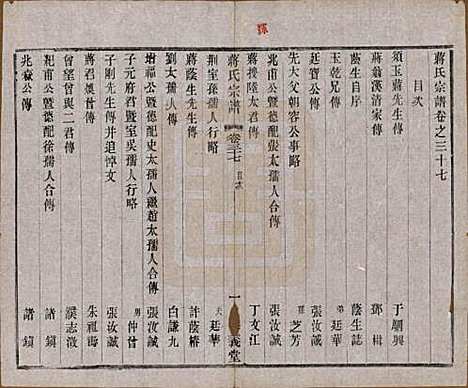 蔣氏宗譜卷之三十七
目次
須玉蔣先生傳 于駉興
蔣翁漢清家傳 鄧楫
蔭生自序 蔭生誌
玉乾兄傳 弟廷華
廷寶公傳 張汝誠
先大父朝容公事略 孫芝芳
兆甫公暨德配張太孺人合傳 張汝誠
蔣母陸太君傳 丁文江
蔣氏宗譜 卷三十七 目次 一 義堂
荆室孫孺人行略 夫廷華
蔣蔭生先生傳 許蔭椿
劉太孺人傳 白謙九
增福公暨德配史太孺人繼趙太孺人合傳 張汝誠
子元府君暨室吳孺人行略 男仲曾
子剛先生傳并追悼文 張汝誠
蔣君奐曾傳 朱祖湯
曾望曾與二君傳 濮志澂
耜甫公暨德配徐孺人合傳 諸鎮
兆嶽公傳 諸鎮